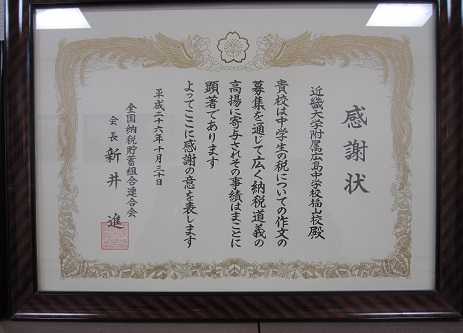 感謝状
近畿大学附属広島中学校福山校殿
貴校は中学生の税についての作文の
募集を通じて広く納税道義の
高揚に寄与されその事績はまことに
顕著であります
よってここに感謝の意を表します
平成二十六年十月三十日
全国納税貯蓄組合連合会
会長 新井 進